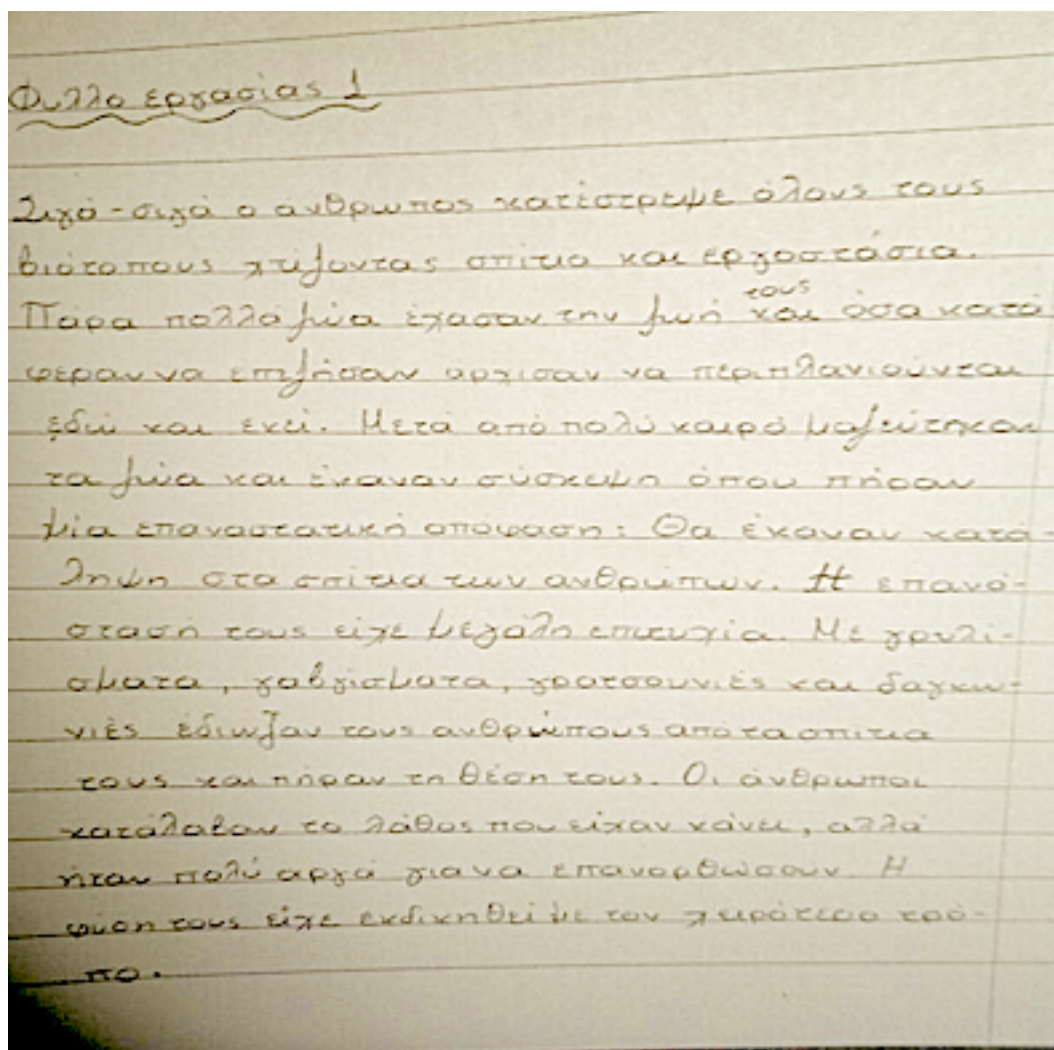 Φυλλο εργασίας 1
Σιγά-σιγά ο άνθρωπος κατέστρεψε όλους τους
βιότοπους χτίζοντας σπίτια και εργοστάσια.
Πάρα πολλά ζώα έχασαν την ζωή τους και όσα κατά
φεραν να επιζήσαν αρχισαν να περιπλανιούνται
εδώ και εκεί. Μετά από πολύ καιρό μαζεύτηκαν
τα ζώα και έκαναν σύσκεψη όπου πήραν
μία επαναστατική απόφαση: Θα έκαναν κατά-
ληψη στα σπίτια των ανθρώπων. Η επανά-
στασή τους είχε μεγάλη επιτυχία. Με γρυλί-
σματα, γαβγίσματα, γρατσουνιές και δαγκω-
νιές έδιωξαν τους ανθρώπους από τα σπίτια
τους και πήραν τη θέση τους. Οι άνθρωποι
κατάλαβαν το λάθος που είχαν κάνει, αλλά
ήταν πολύ αργά για να επανορθώσουν. Η
φύση τους είχε εκδικηθεί με τον χειρότερο τρό-
πο.